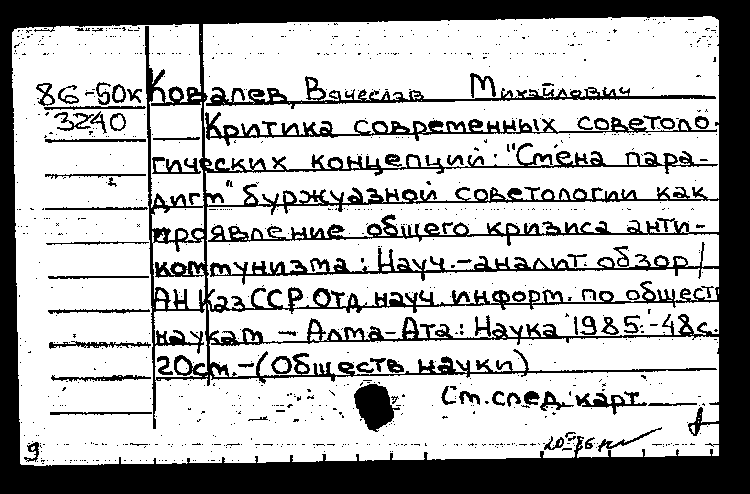 86-50к Ковалев, Вячеслав Михайлович
3240 Критика современных советоло-
гических концепций: "Смена пара-
дигм" буржуазной советологии как
проявление общего кризиса анти-
коммунизма: Науч.-аналит. обзор /
АН КазССР. Отд. науч. информ. по обществ
наукам — Алма-Ата: Наука, 1985.-48с.
20см.-(Обществ. науки)
См. след. карт.
9